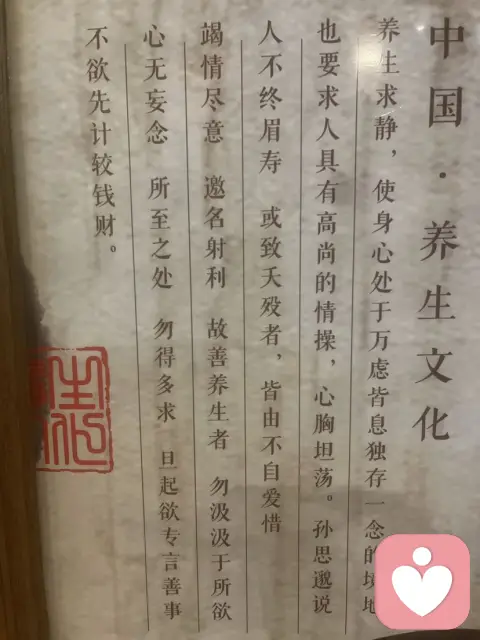 中国·养生文化
养生求静，使身心处于万虑皆息独存一念的境地
也要求人具有高尚的情操，心胸坦荡。孙思邈说
人不终眉寿 或致夭殁者，皆由不自爱惜
竭情尽意 邀名射利 故善养生者 勿汲汲于所欲
心无妄念 所至之处 勿得多求 旦起欲专言善事
不欲先计较钱财。